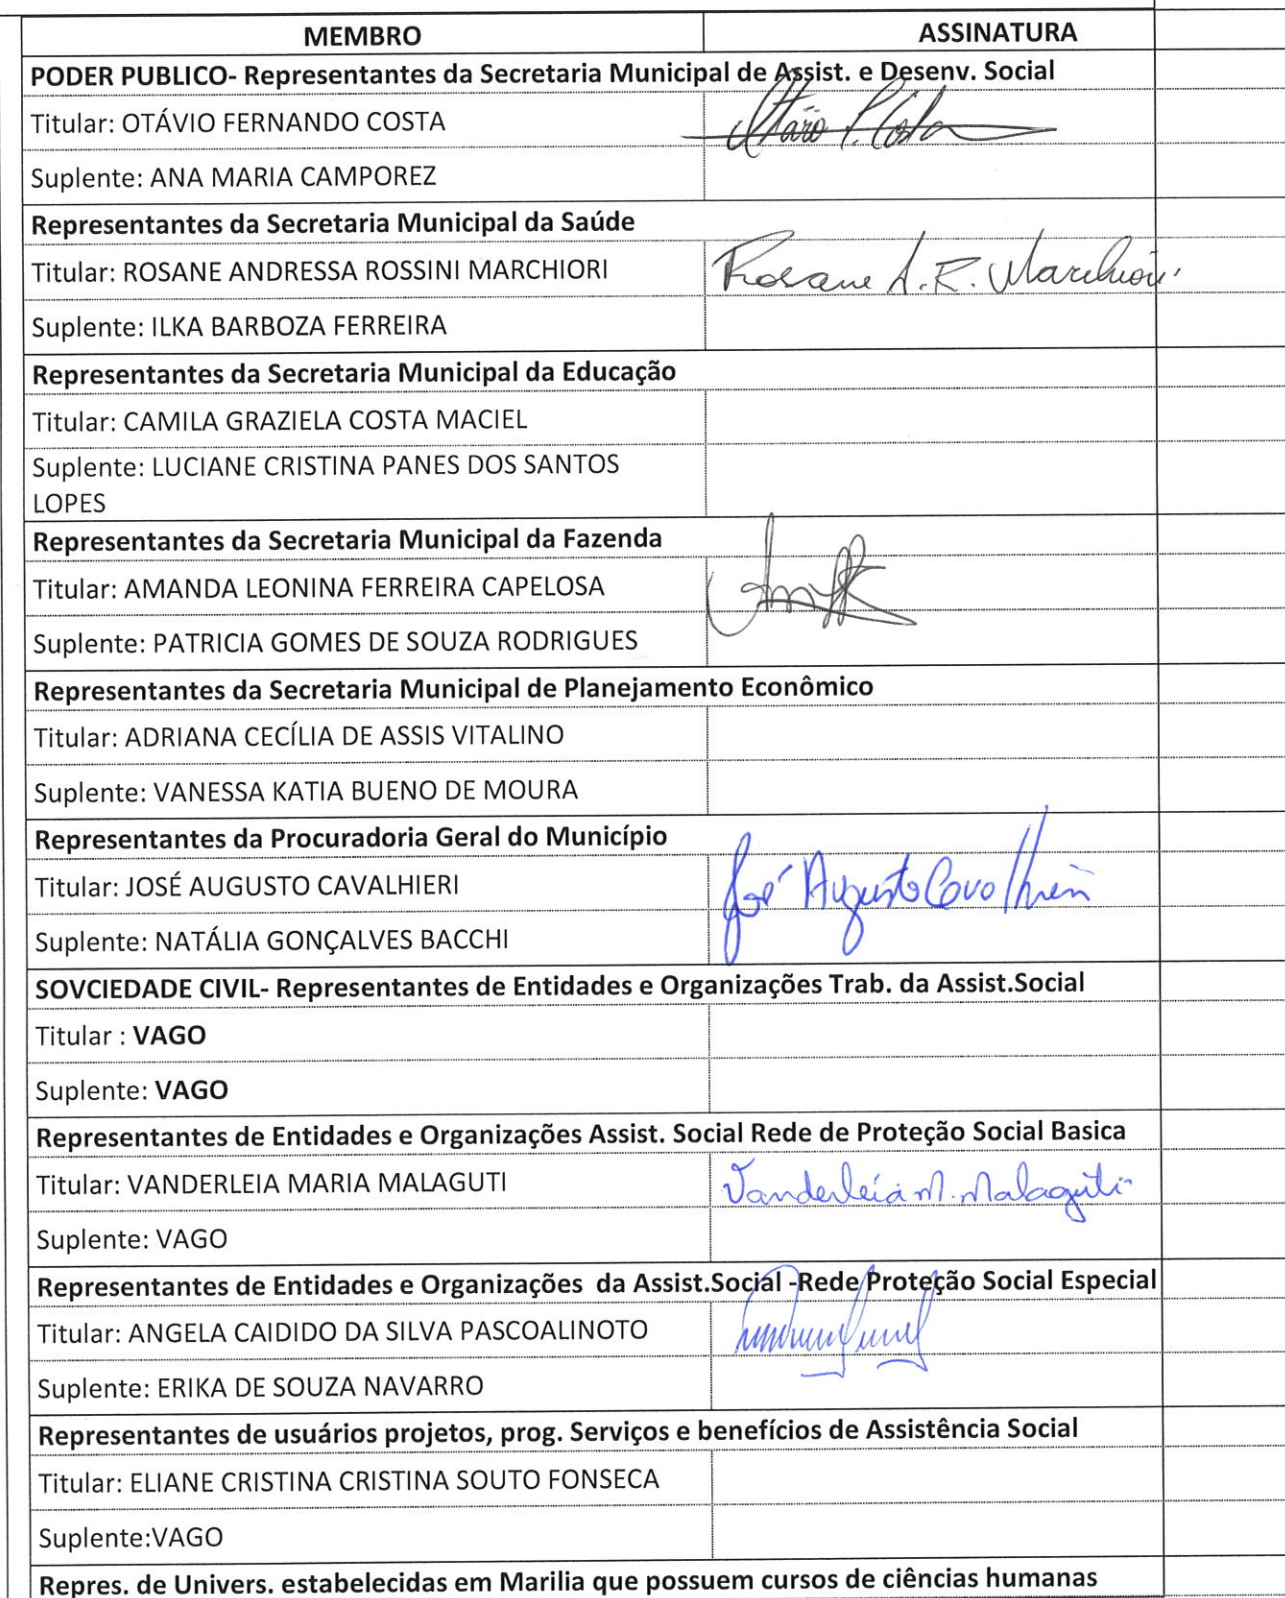 MEMBRO ASSINATURA
PODER PUBLICO- Representantes da Secretaria Municipal de Assist. e Desenv. Social
Titular: OTÁVIO FERNANDO COSTA Otávio F. Costa
Suplente: ANA MARIA CAMPOREZ
Representantes da Secretaria Municipal da Saúde
Titular: ROSANE ANDRESSA ROSSINI MARCHIORI Rosane A. R. Marchiori
Suplente: ILKA BARBOZA FERREIRA
Representantes da Secretaria Municipal da Educação
Titular: CAMILA GRAZIELA COSTA MACIEL
Suplente: LUCIANE CRISTINA PANES DOS SANTOS
LOPES
Representantes da Secretaria Municipal da Fazenda
Titular: AMANDA LEONINA FERREIRA CAPELOSA
Suplente: PATRICIA GOMES DE SOUZA RODRIGUES
Representantes da Secretaria Municipal de Planejamento Econômico
Titular: ADRIANA CECÍLIA DE ASSIS VITALINO
Suplente: VANESSA KATIA BUENO DE MOURA
Representantes da Procuradoria Geral do Município
Titular: JOSÉ AUGUSTO CAVALHIERI José Augusto Cavalhieri
Suplente: NATÁLIA GONÇALVES BACCHI
SOVCIEDADE CIVIL- Representantes de Entidades e Organizações Trab. da Assist.Social
Titular : VAGO
Suplente: VAGO
Representantes de Entidades e Organizações Assist. Social Rede de Proteção Social Basica
Titular: VANDERLEIA MARIA MALAGUTI Vanderleia M. Malaguti
Suplente: VAGO
Representantes de Entidades e Organizações da Assist.Social -Rede Proteção Social Especial
Titular: ANGELA CAIDIDO DA SILVA PASCOALINOTO
Suplente: ERIKA DE SOUZA NAVARRO
Representantes de usuários projetos, prog. Serviços e benefícios de Assistência Social
Titular: ELIANE CRISTINA CRISTINA SOUTO FONSECA
Suplente:VAGO
Repres. de Univers. estabelecidas em Marilia que possuem cursos de ciências humanas